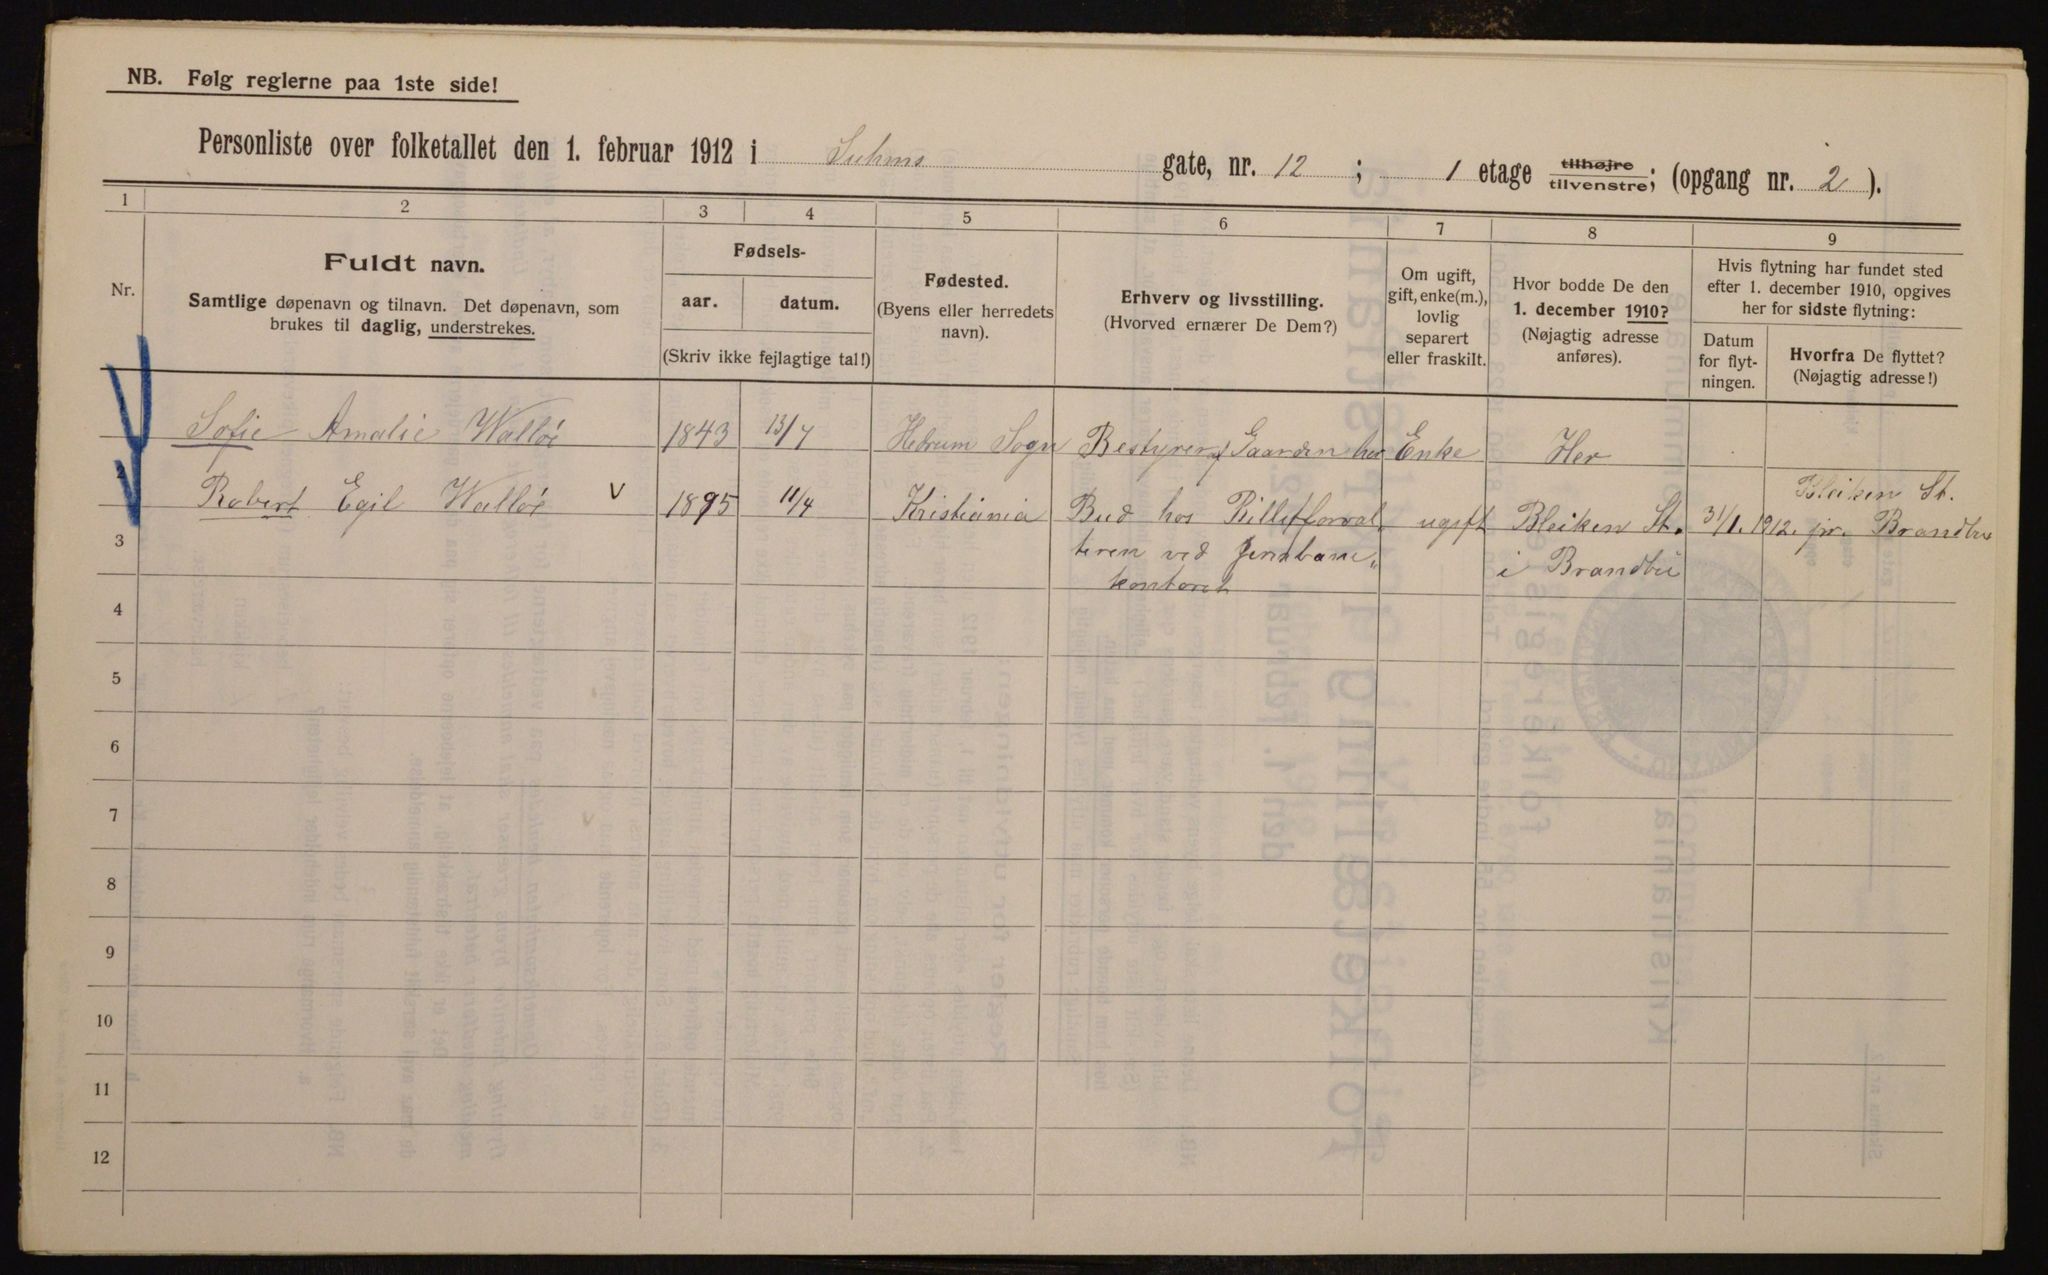 NB. Følg reglerne paa 1ste side!
Personliste over folketallet den 1. februar 1912 i Suhms gate, nr. 12 ; 1 etage tilhøjre tilvenstre; (opgang nr. 2 ).
1 2 3 4 5 6 7 8 9
Nr.
Fuldt navn.
Samtlige døpenavn og tilnavn. Det døpenavn, som
brukes til daglig, understrekes.
Fødsels-
aar. datum.
(Skriv ikke fejlagtige tal!)
Fødested.
(Byens eller herredets
navn).
Erhverv og livsstilling.
(Hvorved ernærer De Dem?)
Om ugift,
gift, enke(m.),
lovlig
separert
eller fraskilt.
Hvor bodde De den
1. december 1910?
(Nøjagtig adresse
anføres).
Hvis flytning har fundet sted
efter 1. december 1910, opgives
her for sidste flytning:
Datum
for flyt-
ningen.
Hvorfra De flyttet?
(Nøjagtig adresse!)
Sofie Amalie Walløe 1843 13/7 Hedrum Sogn Bestyrer Gaarden her Enke Her
2 Robert Egil Walløe v 1895 11/4 Kristiania Bud hos Billetforval- ugift Bleiken St. 31/1. 1912. Bleiken St.
teren ved Jernbane- i Brandbu pr. Brandbu
kontoret
3
4
5
6
7
8
9
10
11
12